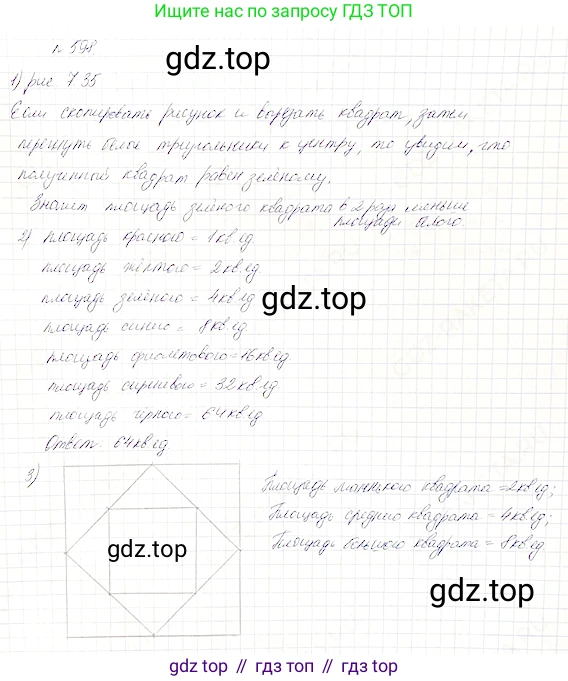 Ищите нас по запросу ГДЗ ТОП
№ 598
gdz.top
1) рис 7.35
Если скопировать рисунок и вырезать квадрат, затем
перегнуть белые треугольники к центру, то увидим, что
полученный квадрат равен зелёному.
Значит площадь зелёного квадрата в 2 раза меньше
площади белого.
2) площадь красного = 1 кв ед.
площадь жёлтого = 2 кв ед
площадь зелёного = 4 кв ед
gdz.top
площадь синего = 8 кв ед
площадь фиолетового = 16 кв ед
площадь сиреневого = 32 кв ед
площадь чёрного = 64 кв ед
Ответ: 64 кв ед.
3)
Площадь маленького квадрата = 2 кв ед;
Площадь среднего квадрата = 4 кв ед;
Площадь большого квадрата = 8 кв ед.
gdz.top
gdz.top
gdz top // гдз топ // gdz.top